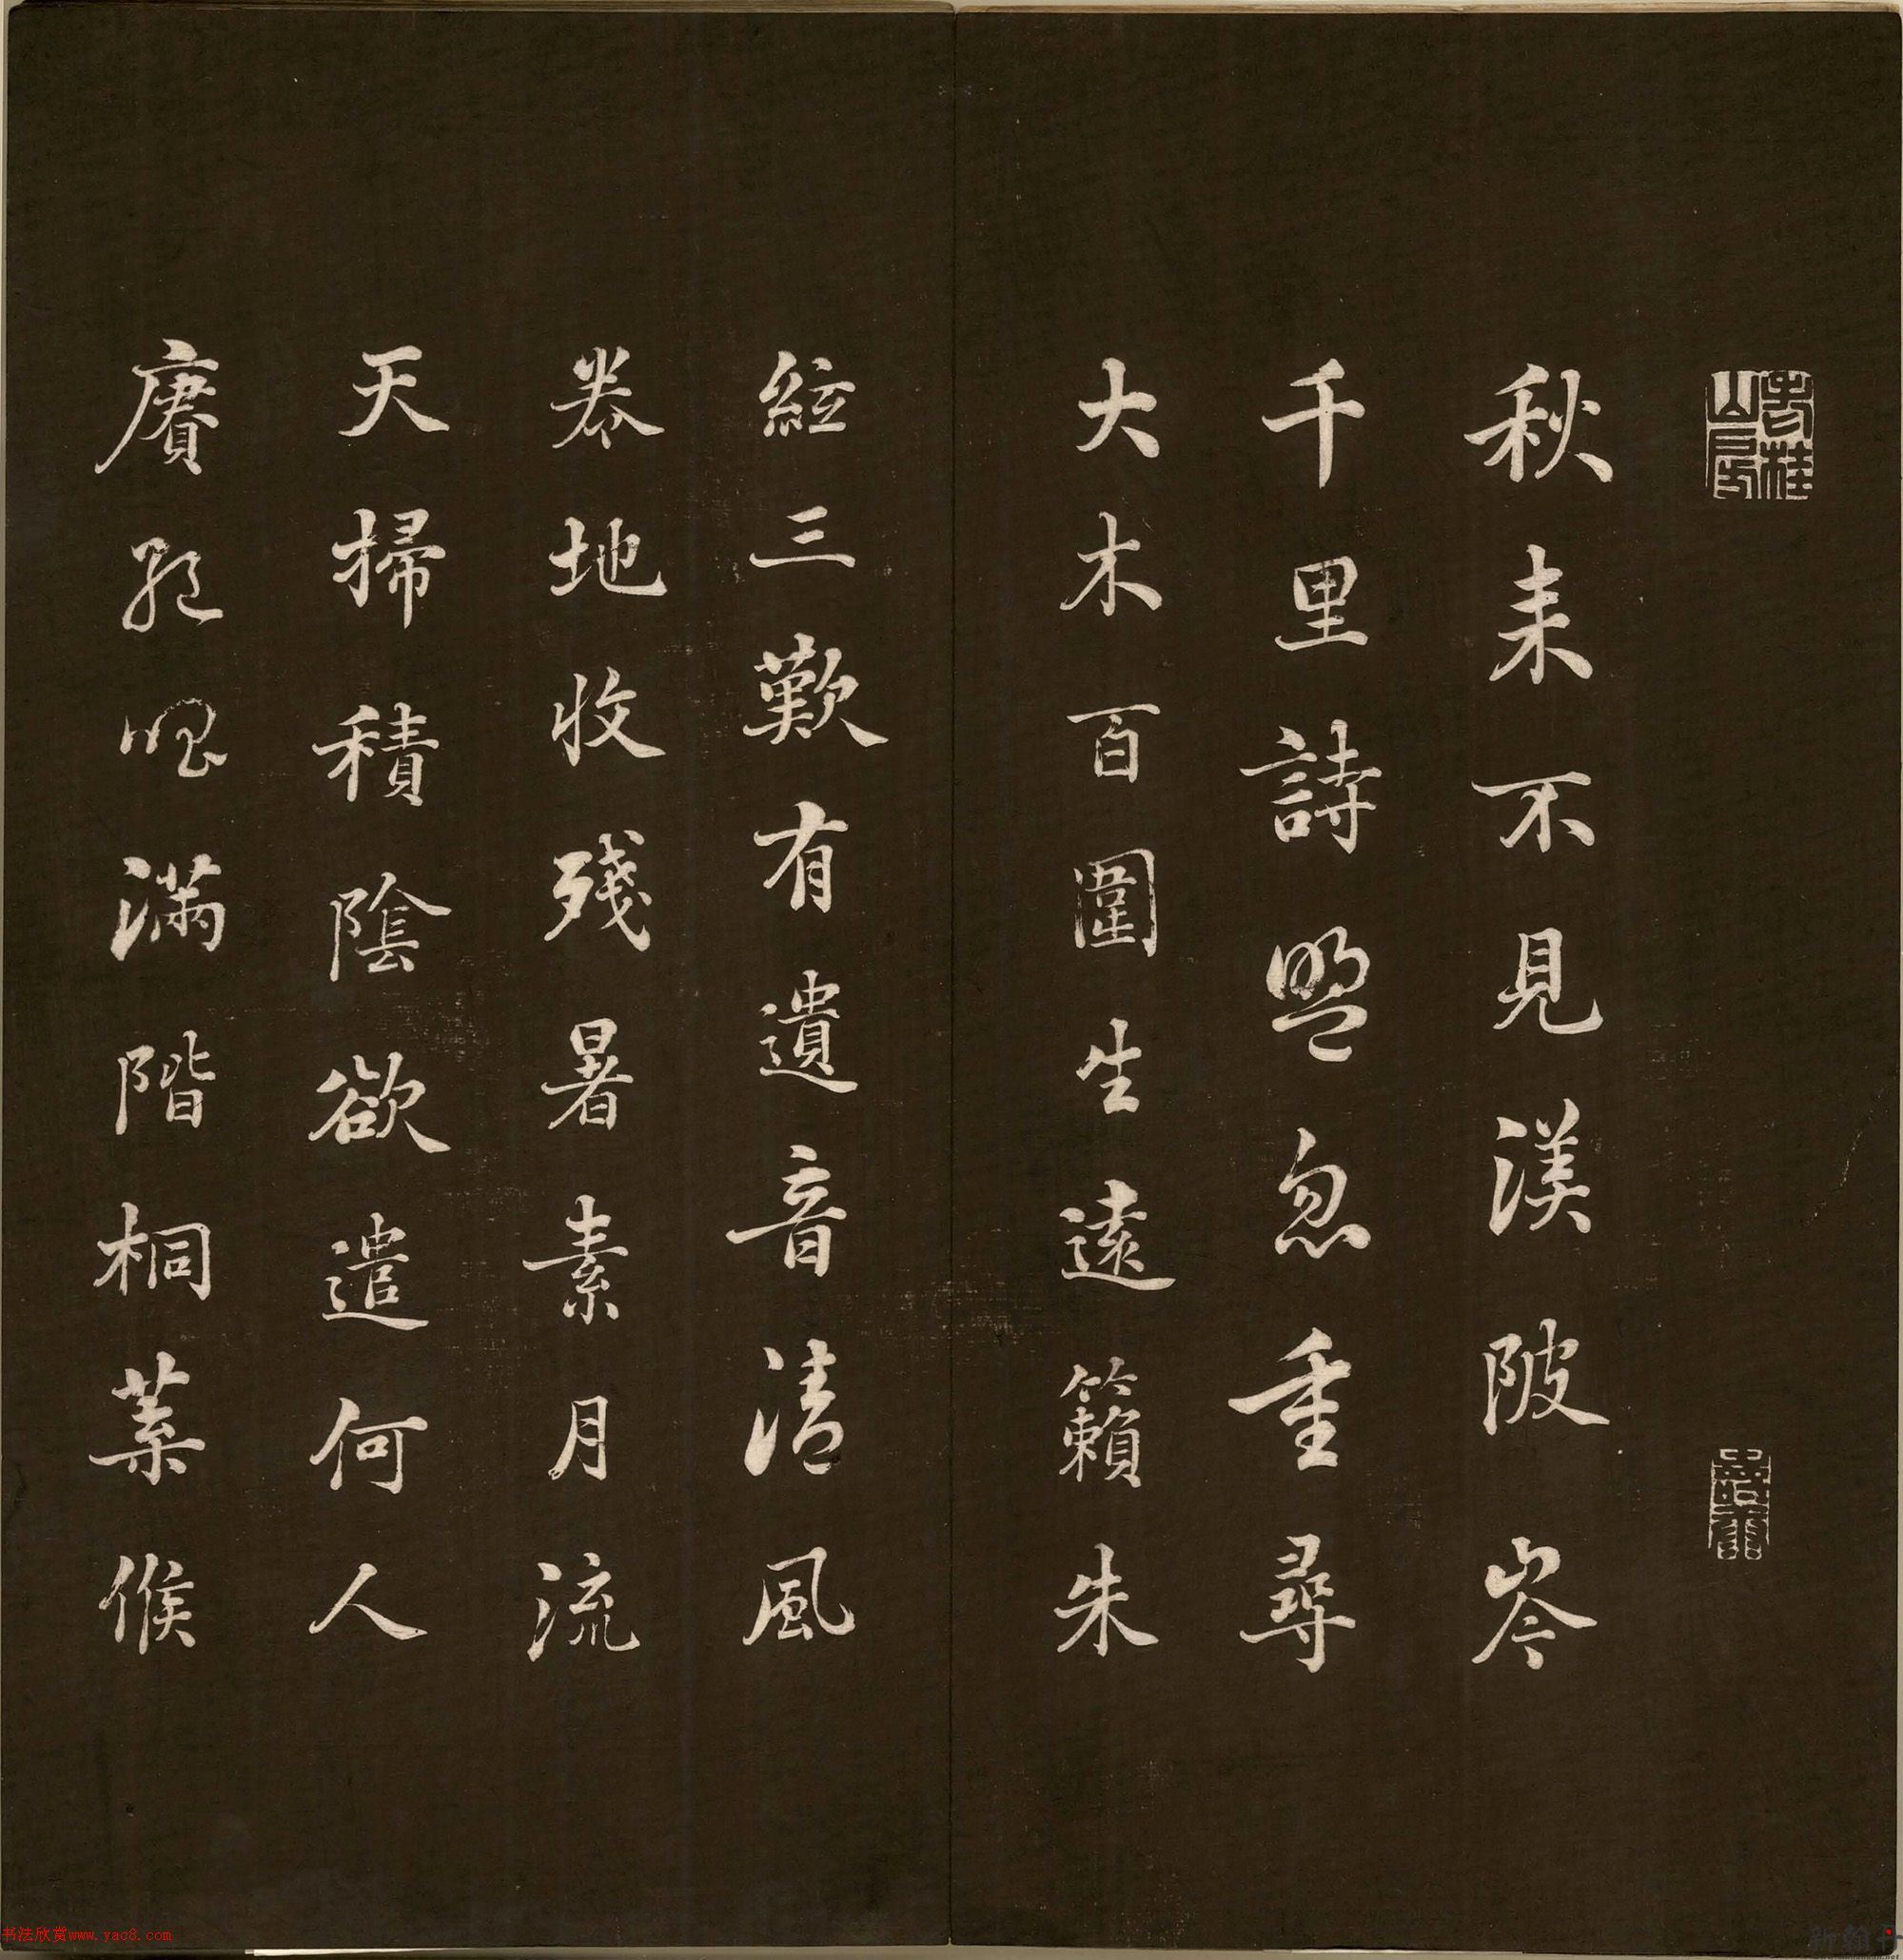 秋来不見渼陂岑
千里詩盟忽重尋
大木百圍生遠籟朱
絃三歎有遺音清風
卷地收殘暑素月流
天掃積陰欲遣何人
賡絶唱滿階桐葉候
书法欣赏www.yac8.com